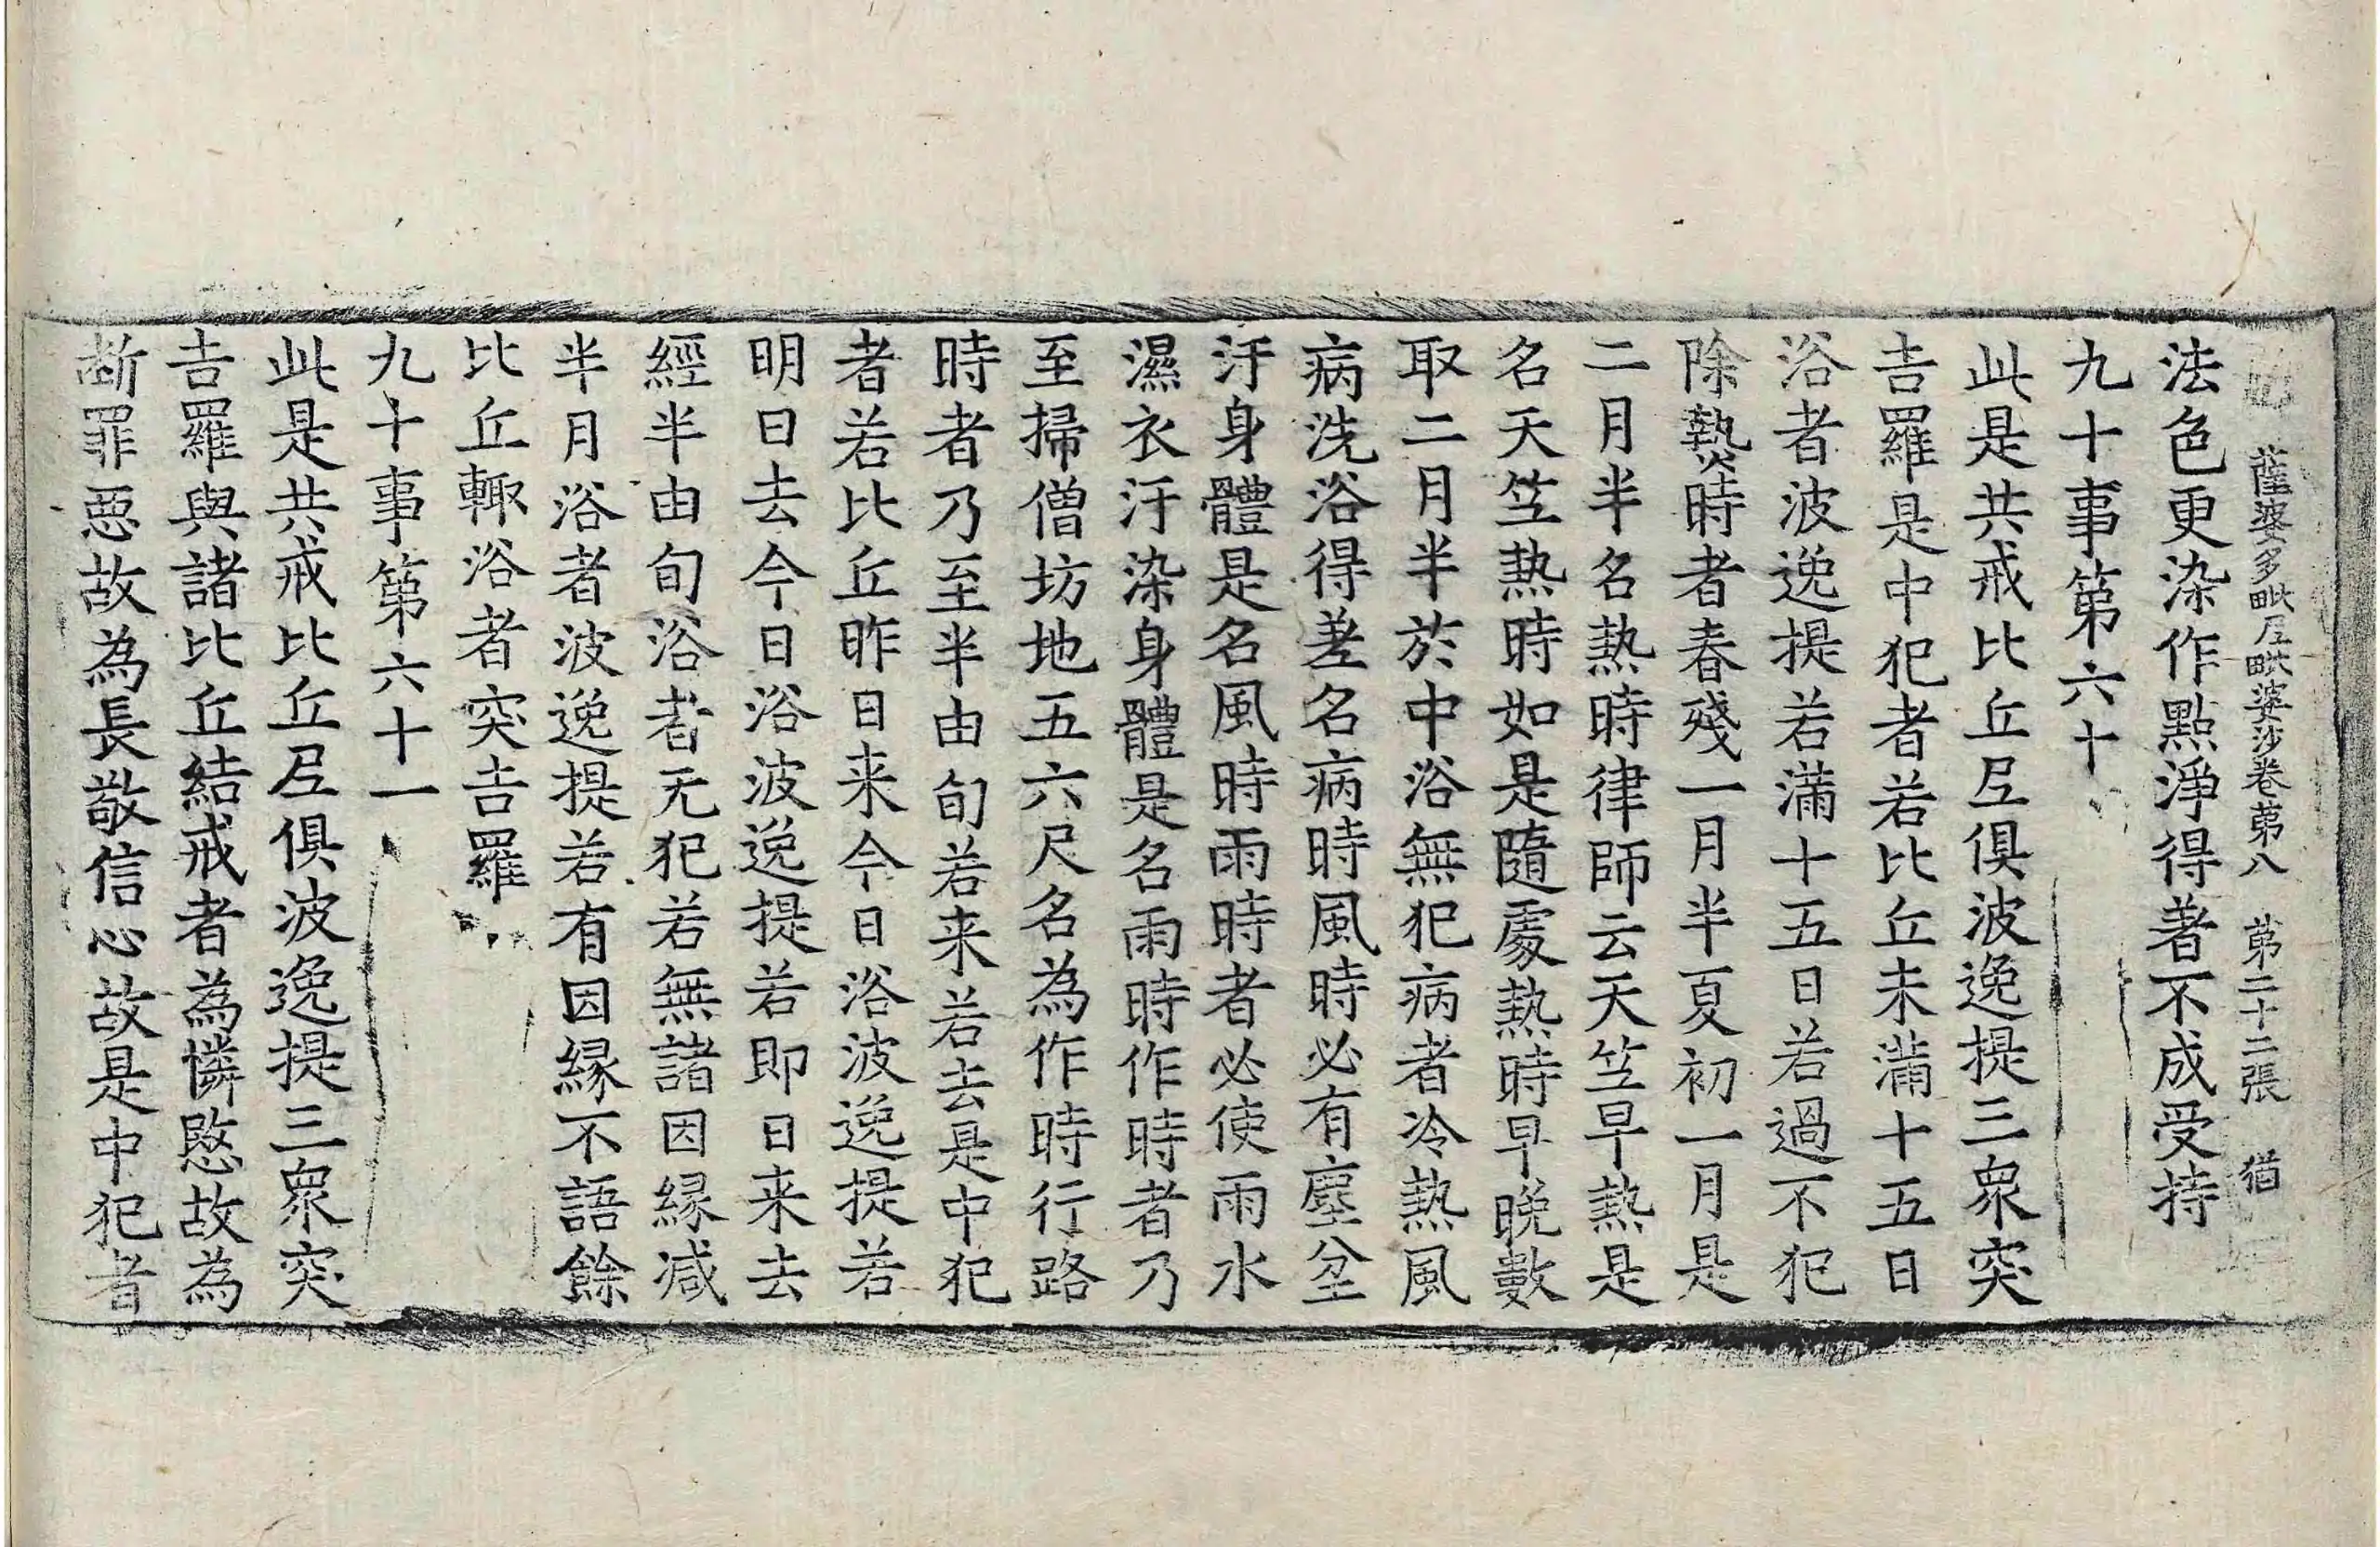 薩婆多毗尼毗婆沙卷苐八　苐二十二張　猶
法色更染作點淨得著不成受持
九十事第六十
此是共戒比丘尼俱波逸提三衆突
吉羅是中犯者若比丘未滿十五日
浴者波逸提若滿十五日若過不犯
除熱時者春殘一月半夏初一月是
二月半名熱時律師云天竺早熱是
名天竺熱時如是隨處熱時早晚數
取二月半於中浴無犯病者冷熱風
病洗浴得差名病時風時必有塵坌
汙身體是名風時雨時者必使雨水
濕衣汙染身體是名雨時作時者乃
至掃僧坊地五六尺名為作時行路
時者乃至半由旬若来若去是中犯
者若比丘昨日来今日浴波逸提若
明日去今日浴波逸提若即日来去
經半由旬浴者无犯若無諸因縁减
半月浴者波逸提若有因縁不語餘
比丘輙浴者突吉羅
九十事第六十一
此是共戒比丘尼俱波逸提三衆突
吉羅與諸比丘結戒者為憐愍故為
斷罪惡故為長敬信心故是中犯者